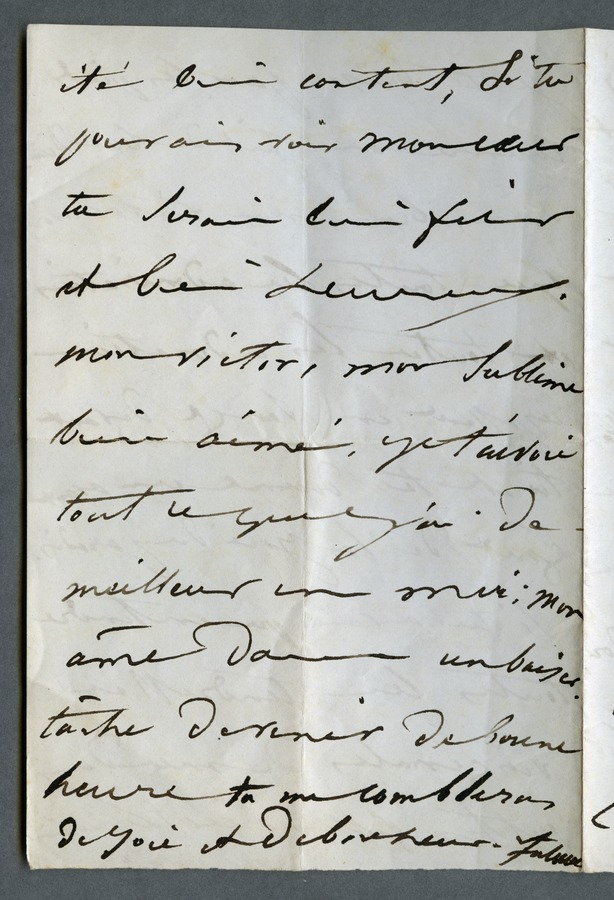 été bien content, Si tu
pouvais voir mon cœur
tu serais bien fier
et bien heureux.
mon victor, mon sublime
bien aimé, je t'envoie
tout ce que j'ai de
meilleur en moi; mon
âme dans un baiser.
tâche de venir de bonne
heure tu me combleras
de joie et de bonheur. Juliette